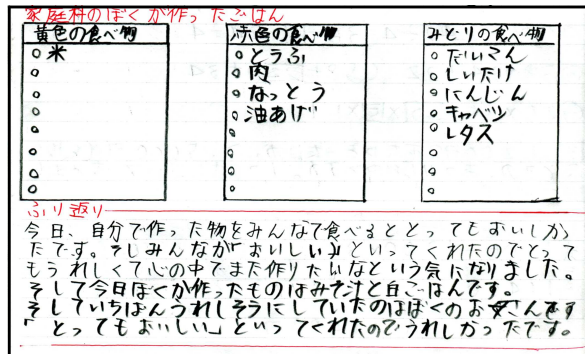 家庭科のぼくが作ったごはん
黄色の食べ物
○米
赤色の食べ物
○とうふ
○肉
○なっとう
○油あげ
みどりの食べ物
○だいこん
○しいたけ
○にんじん
○キャベツ
○レタス
ふり返り
今日、自分で作った物をみんなで食べるととってもおいしか
たです。そしみんなが「おいしい」といってくれたのでとって
もうれしくて心の中でまた作りたいなという気になりました。
そして今日ぼくが作ったものはみそ汁と白ごはんです。
そしていちばんうれしそうにしていたのはぼくのお母さんです
「とってもおいしい」といってくれたのでうれしかったです。